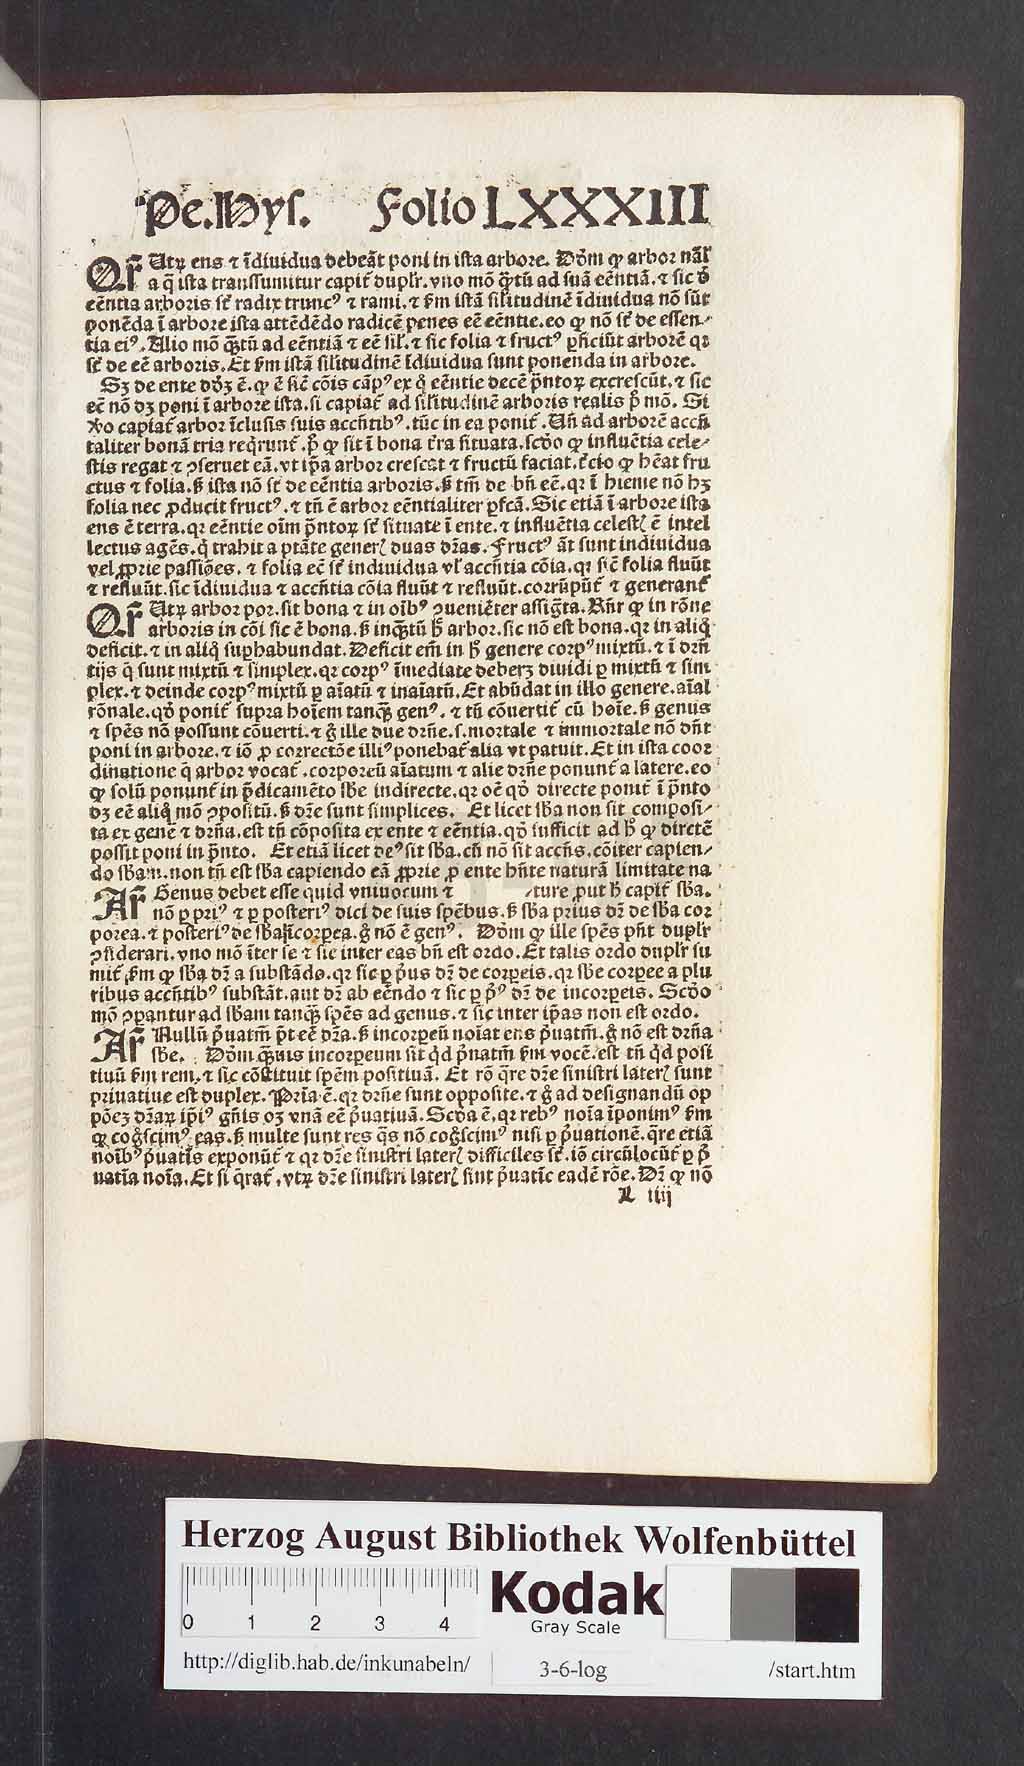 Pe. Hys. Folio LXXXIII
Qr̄ Vtꝝ ens ⁊ īdiuidua debeāt poni in ista arbore. Dōm ꝙ arbor nāl̄r
a q̄ ista transsumitur capit̄ duplr̄. vno mō q̄ꝫtū ad suā eēntiā. ⁊ sic ō
eēntia arboris st̄ radix truncꝰ ⁊ rami. ⁊ ẜm istā sil̄itudinē īdiuidua nō sūt
ponēda ī arbore ista attēdēdo radicē penes eē eēntie. eo ꝙ nō st̄ de essen-
tia eiꝰ. Alio mō q̄ꝫtū ad eēntiā ⁊ eē sil̄. ⁊ sic folia ⁊ fructꝰ ꝑficiūt arborē qꝛ
st̄ de eē arboris. Et ẜm istā sil̄itudinē īdiuidua sunt ponenda in arbore.
Sꝫ de ente dōꝫ ē. ꝙ ē sic̄ cōis cāpꝰ ex q̄ eēntie decē p̄ntoꝝ excrescūt. ⁊ sic
ec̄ nō dꝫ poni ī arbore ista. si capiat̄ ad sil̄itudinē arboris realis p̄ mō. Si
v̄o capiat̄ arbor īclusis suis accn̄tibꝰ. tūc in ea ponit̄. Un̄ ad arborē accn̄
taliter bonā tria req̇runt̄. p̄ ꝙ sit ī bona t̄ra situata. scd̄o ꝙ influētia cele-
stis regat ⁊ ꝯseruet eā. vt ip̄a arbor crescat ⁊ fructū faciat. t̄cio ꝙ hēat fru
ctus ⁊ folia. ẜ ista nō st̄ de eēntia arboris. ẜ tm̄ de bn̄ eē. qꝛ ī hieme nō hꝫ
folia nec ꝓducit fructꝰ. ⁊ tn̄ ē arbor eēntialiter ꝑfcā. Sic etiā ī arbore ista
ens ē terra. qꝛ eēntie oīm p̄ntoꝝ st̄ situate ī ente. ⁊ influētia celestꝭ ē intel
lectus agēs. q̇ trahit a ptāte generꝭ duas dr̄as. Fructꝰ āt sunt indiuidua
vel ꝓprie passiōes. ⁊ folia eē st̄ indiuidua vl̄ accn̄tia cōia. qꝛ sic̄ folia fluūt
⁊ refluūt. sic īdiuidua ⁊ accn̄tia cōia fluūt ⁊ refluūt. corrūpūt̄ ⁊ generant̄
Qr̄ Vtꝝ arbor por. sit bona ⁊ in oībꝰ ꝯueniēter assiḡta. Rn̄r ꝙ in rōne
arboris in cōi sic ē bona. ẜ inq̄ꝫtū h̄ arbor. sic nō est bona. qꝛ in aliq̇
deficit. ⁊ in aliq̇ suꝑhabundat. Deficit em̄ in h̄ genere corpꝰ mixtū. ⁊ ī drn̄
tijs q̄ sunt mixtū ⁊ simplex. qꝛ corpꝰ īmediate deberꝫ diuidi ꝑ mixtū ⁊ sim
plex. ⁊ deinde corpꝰ mixtū ꝑ aīatū ⁊ inaīatū. Et abūdat in illo genere. aīal
rōnale. qd̄ ponit̄ supra hoīem tanq̄ꝫ genꝰ. ⁊ tū cōuertit̄ cū hoīe. ẜ genus
⁊ spēs nō possunt cōuerti. ⁊ ḡ ille due drn̄e. s. mortale ⁊ immortale nō dn̄t
poni in arbore. ⁊ iō ꝓ correctōe illiꝰ ponebat̄ alia vt patuit. Et in ista coor
dinatione q̄ arbor vocat̄. corporeū aīatum ⁊ alie drn̄e ponunt̄ a latere. eo
ꝙ solū ponunt̄ in p̄dicamēto sb̄e indirecte. qꝛ oē qd̄ directe ponit̄ ī p̄nto
dꝫ eē aliq̇ mō ꝯpositū. ẜ dr̄e sunt simplices. Et licet sb̄a non sit composi-
ta ex genē ⁊ drn̄a. est tn̄ cōposita ex ente ⁊ eēntia. qd̄ sufficit ad h̄ ꝙ diretē
possit poni in p̄nto. Et etiā licet deꝰ sit sb̄a. cū nō sit accn̄s. cōiter capien-
do sb̄am. non tn̄ est sb̄a capiendo eā ꝓprie ꝓ ente hn̄te naturā limitate na
Ar̄ Genus debet esse quid vniuocum ⁊ ture ꝓut h̄ capit̄ sb̄a.
nō ꝑ priꝰ ⁊ ꝑ posteriꝰ dici de suis spēbus. ẜ sb̄a prius dr̄ de sb̄a cor
porea. ⁊ posteriꝰ de sb̄a īcorꝑea. ḡ nō ē genꝰ. Dōm ꝙ ille spēs pn̄t duplr̄
ꝯsiderari. vno mō īter se ⁊ sic inter eas bn̄ est ordo. Et talis ordo duplr̄ su
mit̄ ẜm ꝙ sb̄a dr̄ a substādo. qꝛ sic ꝑ p̄us dr̄ de corꝑeis. qꝛ sb̄e corꝑee a plu
ribus accn̄tibꝰ substāt. aut dr̄ ab eēndo ⁊ sic ꝑ pꝰ dr̄ de incorꝑeis. Scd̄o
mō ꝯꝑantur ad sb̄am tanq̄ꝫ spēs ad genus. ⁊ sic inter ip̄as non est ordo.
Ar̄ Nullū p̄uatm̄ p̄t eē dr̄a. ẜ incorꝑeū noīat ens p̄uatm̄. ḡ nō est drn̄a
sb̄e. Dōm q̄ꝫuis incorꝑeum sit q̇d p̄uatm̄ ẜm vocē. est tn̄ q̇d posi
tiuū ẜm rem. ⁊ sic cōstituit spēm positiuā. Et rō q̄re dr̄e sinistri laterꝭ sunt
priuatiue est duplex. Prīa ē. qꝛ drn̄e sunt opposite. ⁊ ḡ ad designandū op
pōeꝫ dr̄aꝝ ip̄iꝰ gn̄is oꝫ vnā eē p̄uatiuā. Scd̄a ē. qꝛ rebꝰ noīa īponimꝰ ẜm
ꝙ coḡscimꝰ eas. ẜ multe sunt res q̄s nō coḡscimꝰ nisi ꝑ p̄uationē. q̄re etiā
noībꝰ p̄uatīs exponūt̄ ⁊ qꝛ dr̄e sinistri laterꝭ difficiles st̄. iō circūlocūt̄ ꝑ p̄
uatīa noīa. Et si q̄rat̄. vtꝝ dr̄e sinistri laterꝭ sint p̄uatīe eadē rōe. Dr̄ ꝙ nō
L iiij
Herzog August Bibliothek Wolfenbüttel
0 1 2 3 4
Kodak
Gray Scale
http://diglib.hab.de/inkunabeln/ 3-6-log /start.htm